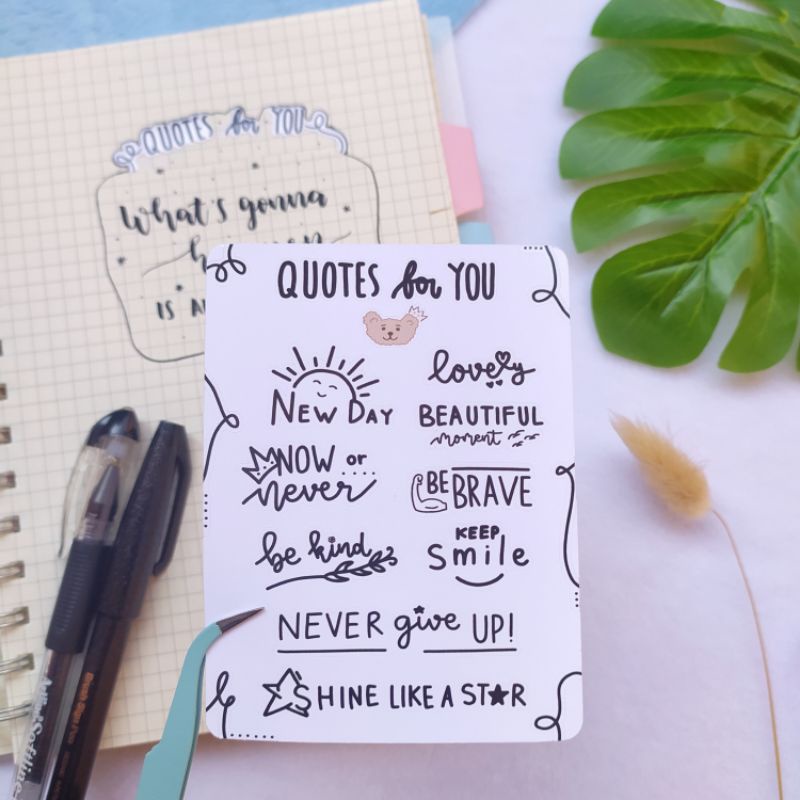 QUOTES for YOU
What's gonna
IS
QUOTES for YOU
NEW DAY
lovely
BEAUTIFUL
moment
NOW or
never
BE BRAVE
be kind
KEEP
smile
NEVER give UP!
SHINE LIKE A STAR